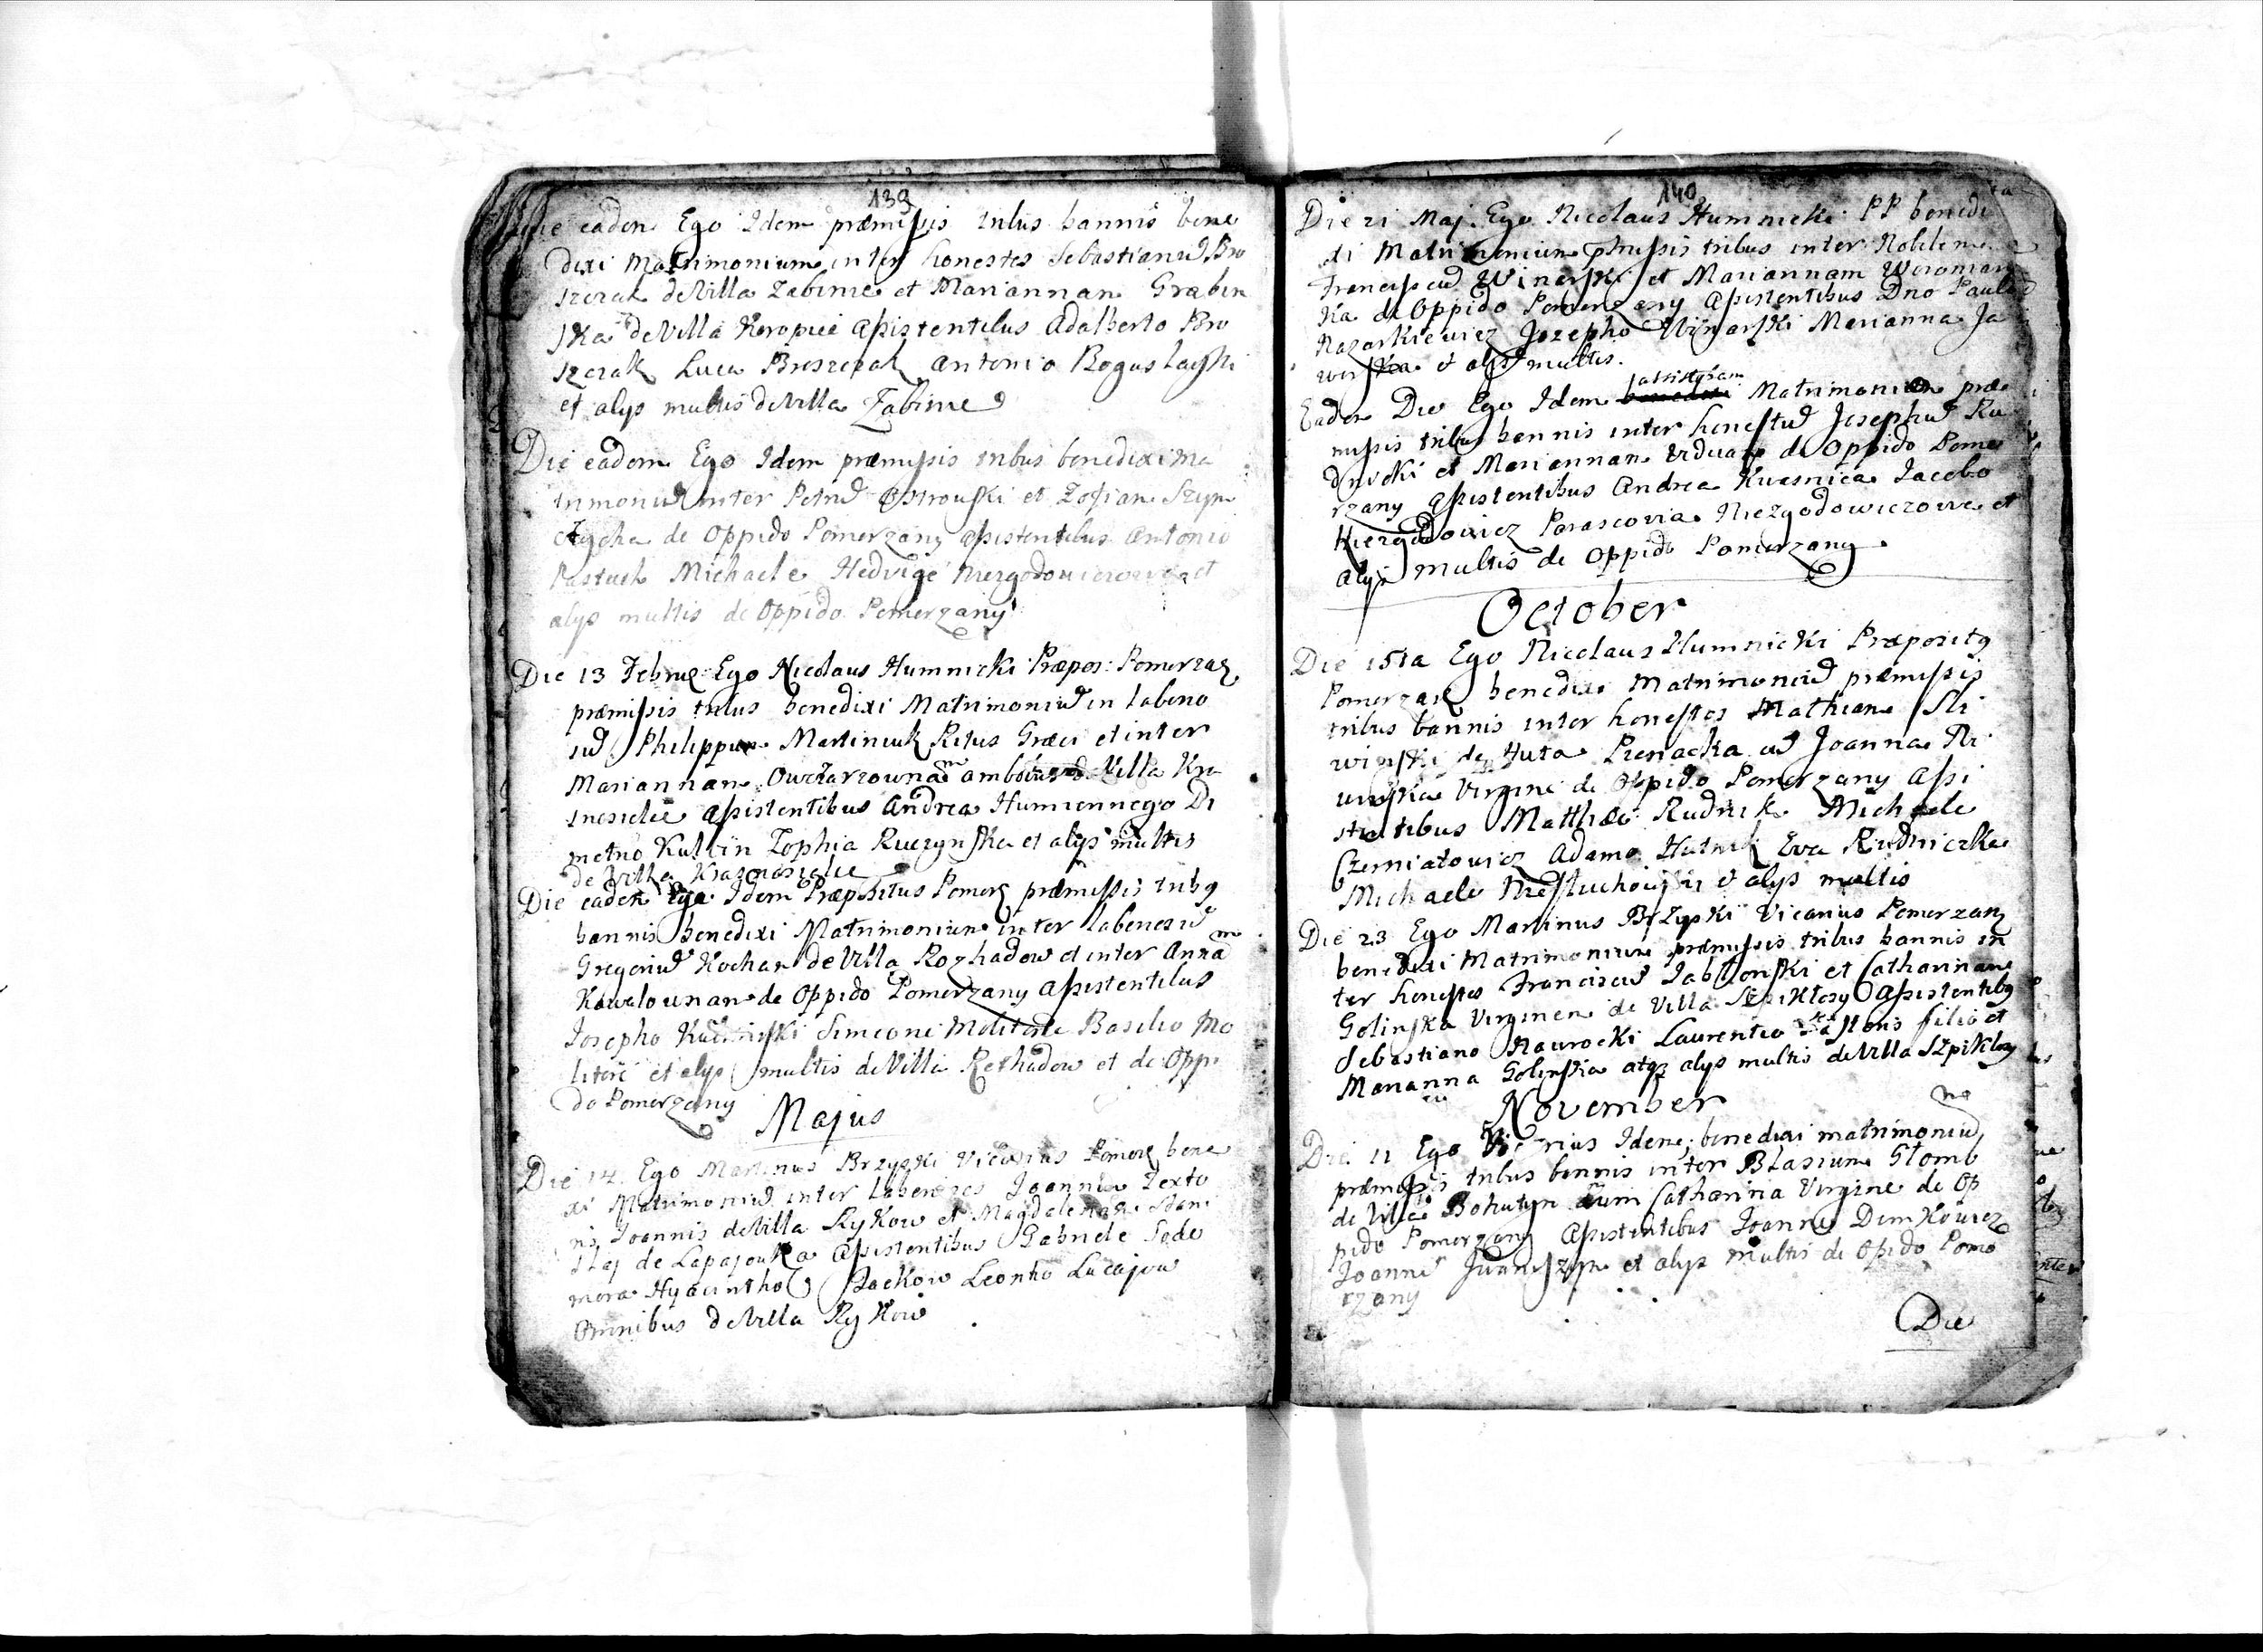 139
Die eadem Ego Idem præmissis tribus bannis bene
dixi Matrimonium inter honestos Sebastianū Bro
szczak de Villa Zabinie et Mariannam Grabin
ska de Villa Koropiec assistentibus Adalberto Bro
szczak Luca Broszczak Antonio Boguslaski
et alys multis de Villa Zabinie
Die eadem Ego Idem præmissis tribus benedixi ma
trimoniū inter Petrū Ostrouski et Zofiam Szym
de Oppido Pomerzany assistentibus Antonio
Pastuch Michaele Hedvige et
alys multis de Oppido Pomerzany
Die 13 Febru: Ego Nicolaus Humnicki Præpos: Pomerzan
præmissis tribus benedixi Matrimoniū in labono
sū Philippum Martiniuk Ritus Græci et inter
Mariannam Owczarzownam ambobus de Villa Kra
snosielce assistentibus Andrea Humiennego Di
metro Zophia Ruczynska et alys multis
de Villa Krasnosielce
Die eadem Ego Idem Præpositus Pomerz præmissis tribg
bannis benedixi Matrimonium inter laboriosū
Gregoriū Kochan de Villa Rozhadow et inter Annam
Kowalounam de Oppido Pomerzany assistentibus
Josepho Simeone Basilio Mo
et alys multis de Villa Rozhadow et de Oppi
do Pomerzany
Majus
Die 14 Ego Martinus Brzyski Vicarius Pomerz bene
xi Matrimoniū inter Laboriosos Joannem Texto
ris Joannis de Villa Rykow et Magdalenam Stani
slaj de Lapajouka assistentibus Gabriele Sede
mora Hyacintho Jackow Leontio Lucajow
omnibus de Villa Rykow
140
Die 21 Maj. Ego Nicolaus Humnicki PP benedi
xi Matrimonium pmissis tribus inter Nobilem
Franciscū Winarski et Mariannam
ka de Oppido Pomerzany assistentibus Dno Paulo
Nazarkiewicz Josepho Winarski Marianna Ja
worska et alys multis.
Eadem Die Ego Idem Matrimonium præ
missis tribus bannis inter honestū Josephū Ru
dnicki et Mariannam Viduam de Oppido Pome
rzany assistentibus Andrea Kuasnica Jacobo
Niezgodowicz Parascovia Niezgodowiczowa et
alys multis de Oppido Pomerzany
October
Die 15ta Ego Nicolaus Humnicki Præpositg
Pomerzan benedixi Matrimoniū præmissis
tribus bannis inter honestos Mathiam Sli
winski de Huta Pieniacka et Joanna Ni
Virgine de Oppido Pomerzany assi
stentibus Matthæo Rudnik Michaele
Czerniatowicz Adamo Hutnik Eva Rudniczka
Michaele et alys multis
Die 23 Ego Martinus Brzyski Vicarius Pomerzan
benedixi Matrimonium præmissis tribus bannis in
ter honestos Franciscū Jablonski et Catharinam
Golinska Virginem de Villa Szpiklosy assistentibg
Sebastiano Naurocki Laurentio filio et
Marianna Golinska atqz alys multis de Villa Szpiklosy
November
Die 11 Ego Vicarius Idem; benedixi matrimoniū
præmissis tribus bannis inter Blasium Glomb
de Villa Bohutyn cum Catharina Virgine de Op
pido Pomerzany Assistentibus Joanne Dimkowicz
Joanne et alys multis de Opido Pome
rzany
Die